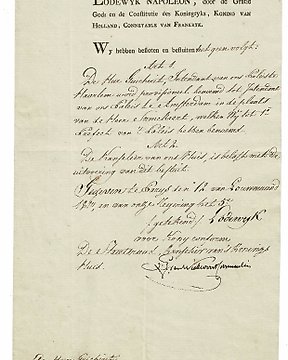 LODEWYK NAPOLEON, door de Gratie
Gods en de Constitutie des Koningryks, KONING VAN
HOLLAND, CONNETABLE VAN FRANKRYK.
WY hebben besloten en besluiten het geen volgt:
Art 1
De Heer Guichuit, Intendant van ons Paleis te
Haarlem word provisioneel benoemd tot Intendant
van ons Paleis te Amsterdam in de plaats
van de Heer welken Wy tot 1e
van 't Paleis hebben benoemd.
Art 2.
De Kanselier van ons Huis, is belast met de
uitvoering van dit besluit.
Gegeven te den 12 van Louwmaand
en van onze Regering het 5e
(getekend) Lodewyk
voor Kopy conform
De Staatsraad Kanselier van 's Konings
Huis.
De Heer